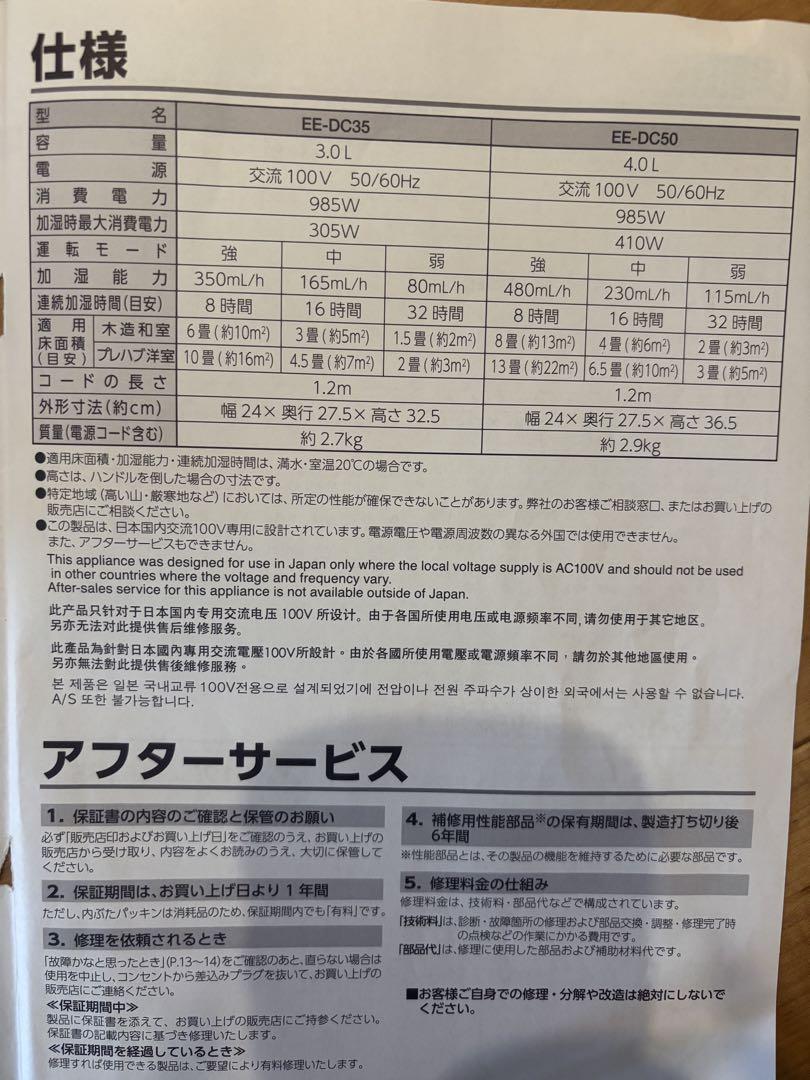 仕様
型名 EE-DC35 EE-DC50
容量 3.0L 4.0L
電源 交流100V 50/60Hz 交流100V 50/60Hz
消費電力 985W 985W
加湿時最大消費電力 305W 410W
運転モード 強 中 弱 強 中 弱
加湿能力 350mL/h 165mL/h 80mL/h 480mL/h 230mL/h 115mL/h
連続加湿時間(目安) 8時間 16時間 32時間 8時間 16時間 32時間
適用床面積(目安) 木造和室 6畳(約10m²) 3畳(約5m²) 1.5畳(約2m²) 8畳(約13m²) 4畳(約6m²) 2畳(約3m²)
プレハブ洋室 10畳(約16m²) 4.5畳(約7m²) 2畳(約3m²) 13畳(約22m²) 6.5畳(約10m²) 3畳(約5m²)
コードの長さ 1.2m 1.2m
外形寸法(約cm) 幅24×奥行27.5×高さ32.5 幅24×奥行27.5×高さ36.5
質量(電源コード含む) 約2.7kg 約2.9kg
●適用床面積・加湿能力・連続加湿時間は、満水・室温20℃の場合です。
●高さは、ハンドルを倒した場合の寸法です。
●特定地域(高い山・厳寒地など)においては、所定の性能が確保できないことがあります。弊社のお客様ご相談窓口、またはお買い上げの
販売店にご相談ください。
●この製品は、日本国内交流100V専用に設計されています。電源電圧や電源周波数の異なる外国では使用できません。
また、アフターサービスもできません。
This appliance was designed for use in Japan only where the local voltage supply is AC100V and should not be used
in other countries where the voltage and frequency vary.
After-sales service for this appliance is not available outside of Japan.
此产品只针对于日本国内专用交流电压 100V 所设计。由于各国所使用电压或电源频率不同,请勿使用于其它地区。
另亦无法对此提供售后维修服务。
此產品為針對日本國內專用交流電壓100V所設計。由於各國所使用電壓或電源頻率不同，請勿於其他地區使用。
另亦無法對此提供售後維修服務。
본 제품은 일본 국내교류 100V전용으로 설계되었기에 전압이나 전원 주파수가 상이한 외국에서는 사용할 수 없습니다.
A/S 또한 불가능합니다.
アフターサービス
1. 保証書の内容のご確認と保管のお願い
必ず「販売店印およびお買い上げ日」をご確認のうえ、お買い上げの
販売店から受け取り、内容をよくお読みのうえ、大切に保管して
ください。
2. 保証期間は、お買い上げ日より1年間
ただし、内ぶたパッキンは消耗品のため、保証期間内でも「有料」です。
3. 修理を依頼されるとき
「故障かなと思ったとき」(P.13〜14)をご確認のあと、直らない場合は
使用を中止し、コンセントから差込みプラグを抜いて、お買い上げの
販売店にご連絡ください。
≪保証期間中≫
製品に保証書を添えて、お買い上げの販売店にご持参ください。
保証書の記載内容に基づき修理いたします。
≪保証期間を経過しているとき≫
修理すれば使用できる製品は、ご要望により有料修理いたします。
4. 補修用性能部品※の保有期間は、製造打ち切り後
6年間
※性能部品とは、その製品の機能を維持するために必要な部品です。
5. 修理料金の仕組み
修理料金は、技術料・部品代などで構成されています。
「技術料」は、診断・故障箇所の修理および部品交換・調整・修理完了時
の点検などの作業にかかる費用です。
「部品代」は、修理に使用した部品および補助材料代です。
■お客様ご自身での修理・分解や改造は絶対にしないで
ください。